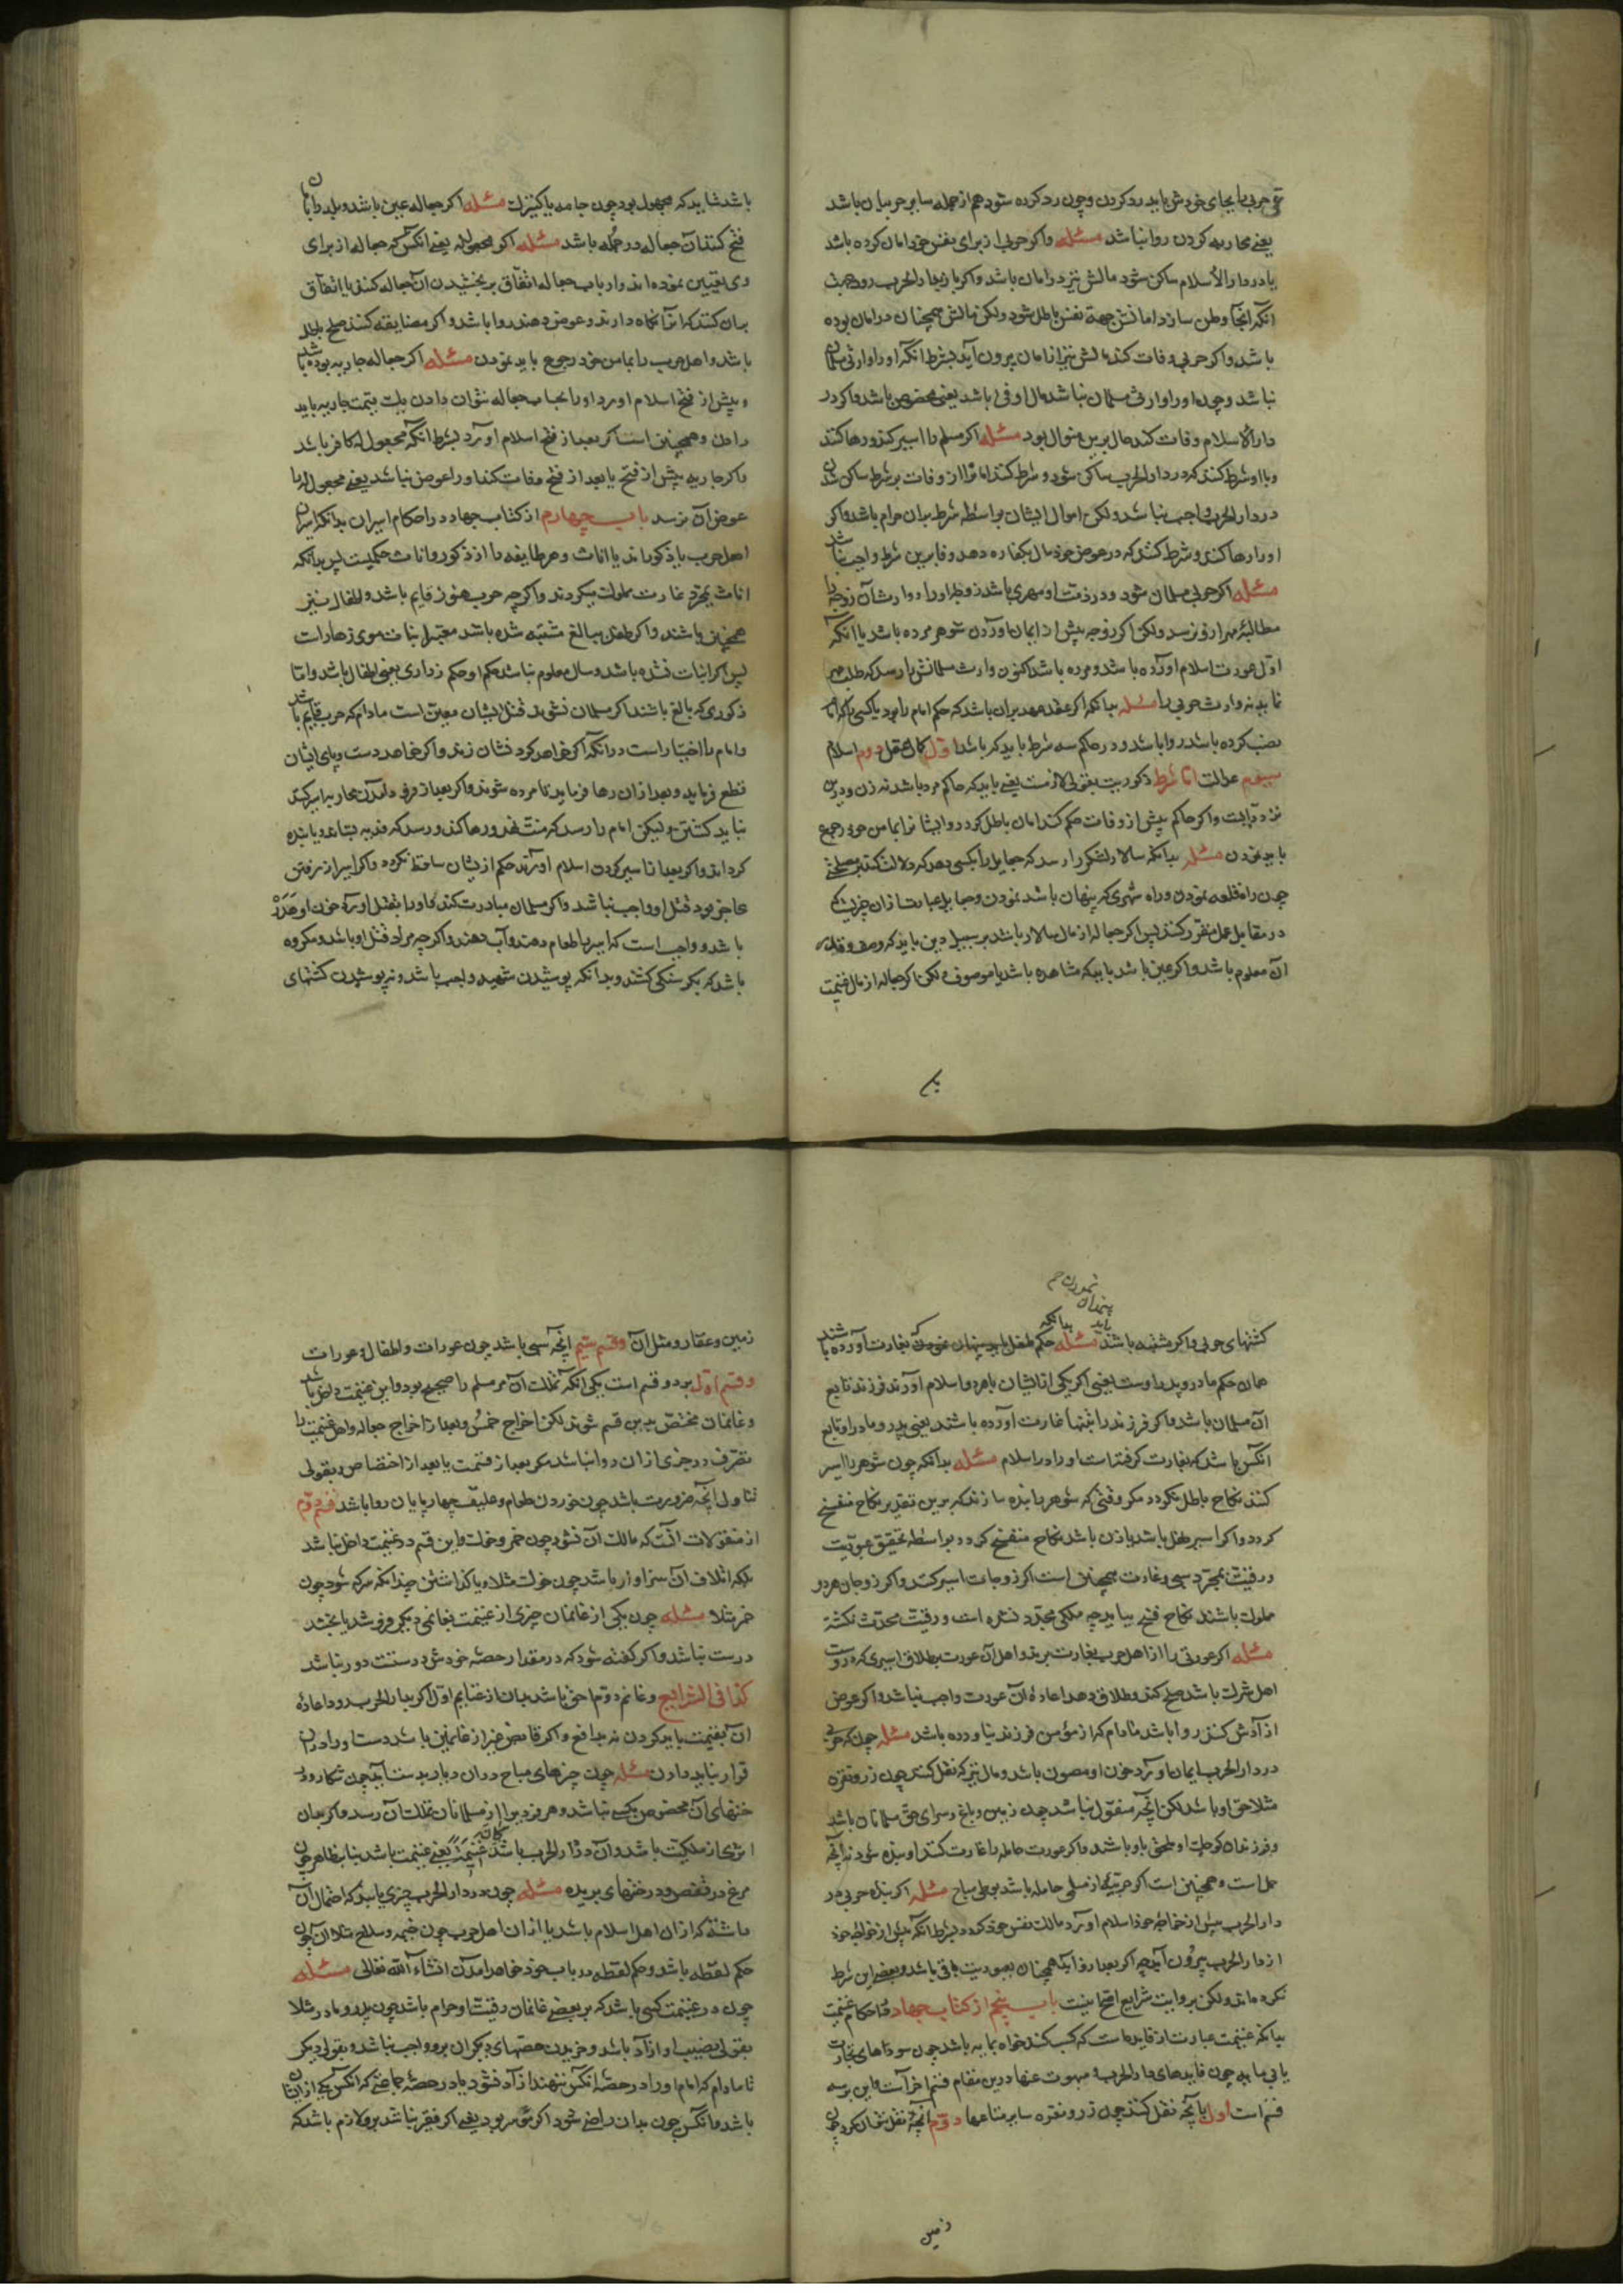 حربی را بجای خودش باید رد کردن و چون رد کرده شود هم از جمله سایر حربیان باشد
یعنی محاربه کردن روا نباشد مسئله و اگر حربی از برای نفس خود امان کرده باشد
یا در دار الاسلام ساکن شود مالش نیز در امان باشد و اگر باز بدار الحرب رود
آنکه آنجا وطن سازد امانش جهة نفس باطل شود ولکن مالش همچنان در امان بوده
باشد و اگر حربی وفات کند مالش نیز از امان بیرون آید بشرط آنکه او را وارثی مسلمان
نباشد و چون او را وارث مسلمان نباشد مال او فی باشد یعنی مخصوص باشد و اگر در
دار الاسلام وفات کند حال برین منوال بود مسئله اگر مسلم را اسیر کنند و رها کنند
و با او شرط کنند که در دار الحرب ساکن شود و شرط کنند امان را از وفات بر شرط ساکن شدن
در دار الحرب واجب نباشد ولکن اموال ایشان بواسطه شرط بر آن حرام باشد و اگر
او را رها کنند و شرط کنند که در عوض خود مال بکفاره دهد وفا برین شرط واجب نباشد
مسئله اگر حربی مسلمان شود و در ذمت او مهری باشد زوجه او را و وارثان زوجه را
مطالبهٔ مهر از او نرسد ولکن اگر زوجه پیش از ایمان آوردن شوهر مرده باشد یا آنکه
اول عورت اسلام آورده باشد و مرده باشد اکنون وارث مسلمانش را رسد که طلب مهر
نماید نه وارث حربی را مسئله بدانکه اگر عقد عهد بر آن باشد که حکم امام را بود یا کسی را که امام
نصب کرده باشد روا باشد و در حاکم سه شرط باید که باشد اول کمال عقل دوم اسلام
سیوم عدالت اما شرط ذکوریت بقولی لازمست یعنی باید که حاکم مرد باشد نه زن و درین
تردد ثابت و اگر حاکم پیش از وفات حکم کند امان باطل کردد و ایشان را بمأمن خود رجوع
باید نمودن مسئله بدانکه سالار لشکر را رسد که جعایل را بکسی دهد که دلالت کند بر مصلحتی
چون راه قلعه نمودن و راه شهری که پنهان باشد نمودن و جعایل عبارت از آن چیزیست که
در مقابل عمل مقرر کنند پس اگر جعاله از مال سالار باشد بر سبیل دین باید که وصف و قدر
آن معلوم باشد و اگر عین باشد باید که مشاهده باشد یا موصوف ولکن اگر جعاله از مال غنیمت
باشد شاید که مجهول بود چون جامه یا کنیزک مسئله اگر جعاله عین باشد و بلد را بامان
فتح کنند آن جعاله در جمله باشد مسئله اگر مجعول له یعنی آنکس که جعاله از برای
وی تعیین نموده اند و ارباب جعاله اتفاق بر بخشیدن آن جعاله کنند یا اتفاق
بر آن کنند که آنرا نگاه دارند و عوض دهند روا باشد و اگر مضایقه کنند صلح باطل
باشد و اهل حرب را بمأمن خود رجوع باید نمودن مسئله اگر جعاله جاریه بوده باشد
و پیش از فتح اسلام آورد او را بجای جعاله نتوان دادن بلک قیمت جاریه باید
دادن و همچنین است اگر بعد از فتح اسلام آورد بشرط آنکه مجعول له کافر باشد
و اگر جاریه پیش از فتح یا بعد از فتح وفات کند او را عوض نباشد یعنی مجعول له را
عوض آن نرسد باب چهارم از کتاب جهاد در احکام اسیران بدانکه اسیران
اهل حرب یا ذکوراند یا اناث و هر طایفه را از ذکور و اناث حکمیست پس بدانکه
اناث بمجرد غارت مملوک میکردند و اگرچه حرب هنوز قایم باشد و اطفال نیز
همچنان باشند و اگر طفل ببالغ مشتبه شده باشد معتبر انبات موی زهارات
پس اگر انبات نشده باشد و سال معلوم نباشد حکم او حکم ذراری یعنی اطفال باشد و اما
ذکوری که بالغ باشند اگر مسلمان نشوند قتل ایشان معین است مادام که حرب قایم باشد
و امام را اختیار است در آنکه اگر خواهد کردنشان زند و اگر خواهد دست و پای ایشان
قطع فرماید و بعد از آن رها فرماید تا مرده شوند و اگر بعد از فرو ماندن محاربه اسیر کیرند
نباید کشتن ولیکن امام را رسد که منت نهد و رها کند و رسد که فدیه بستاند یا بنده
کرداند و اگر بعد از اسیر کردن اسلام آورند حکم ازیشان ساقط نکردد و اگر اسیر از رفتن
عاجز بود قتل او واجب نباشد و اگر مسلمان مبادرت کند و او را بقتل آورد خون او هدر
باشد و واجب است که اسیر را طعام دهند و آب دهند و اگرچه مراد قتل او باشد و مکروه
باشد که بکرسنکی کشند و بدانکه پوشیدن شهید واجب باشد و نه پوشیدن کشتهای
کشتهای حربی و اگر مشتبه باشند مسئله حکم طفل که بغارت آورده باشند
همان حکم مادر و پدر اوست یعنی اگر یکی ازیشان یا هر دو اسلام آورند فرزند تابع
آن مسلمان باشد و اگر فرزند را بتنها غارت آورده باشند یعنی بی پدر و مادر او تابع
آنکس باشد که بغارت کرفتست او را در اسلام مسئله بدانکه چون شوهر را اسیر
کنند نکاح باطل نکردد مکر وقتی که شوهر را بنده سازند که برین تقدیر نکاح منفسخ
کردد و اگر اسیر طفل باشد یا زن باشد نکاح منفسخ کردد بواسطه تحقیق عبودیت
و رقیت بمجرد سبی و غارت همچنین است اگر زوجات اسیر کنند و اگر زوجان هر دو
مملوک باشند نکاح فسخ نیابد چه ملکی مجدد نشده است و رقیت محدث نکشته
مسئله اگر عورتی را از اهل حرب بغارت برند و اهل آن عورت بطلاق اسیری که در دست
اهل شرک باشد صلح کنند و طلاق دهد اعادهٔ آن عورت واجب نباشد و اگر عوض
ازادش کنند روا باشد مادام که از مؤمن فرزند نیاورده باشد مسئله چون که حربی
در دار الحرب ایمان آورد خون او مصون باشد و مال نیز که نقل کنند چون زر و نقره
مثلا حق او باشد لکن آنچه منقول نباشد چون زمین و باغ و سرای حق مسلمانان باشد
و فرزندان کوچک او ملحق باو باشند و اگر عورت حامله را غارت کنند او بنده شود نه آنچه
حمل است و همچنین است اگر حربیه از مسلمی حامله باشد بوطی مباح مسئله اگر بندهٔ حربی در
دار الحرب پیش از خواجه خود اسلام آورد مالک نفس خود کردد بشرط آنکه پیش از خواجه خود
از دار الحرب بیرون آید چه اگر بعد از او آید همچنان بعبودیت باقی باشد و بعضی این شرط
نکرده اند ولکن بروایت شرایع اصح اینست باب پنجم از کتاب جهاد در احکام غنیمت
بدانکه غنیمت عبارت از فایده است که کسب کنند خواه بمایه باشد چون سوداهای تجارت
یا بی مایه چون فایدهای دار الحرب و مبحوث عنها درین مقام قسم آخر است و این بر سه
قسم است اول آنچه نقل کنند چون زر و نقره سایر متاعها دوم آنچه نقل نتوان کرد چون
زمین
زمین و عقار و مثل آن و قسم سیم آنچه سبی باشد چون عورات و اطفال و عورات
و قسم اول بر دو قسم است یکی آنکه تملک آن مر مسلم را صحیح بود و این غنیمت داخل باشد
و غانمان مختص بدین قسم شوند لکن اخراج خمس و بعد از اخراج جعاله و اهل غنیمت را
تصرف در چیزی از آن روا نباشد مکر بعد از قسمت یا بعد از اختصاص و بقولی
تناول آنچه ضرورت باشد چون خوردن طعام و علیق چهارپایان روا باشد قسم دوم
از منقولات آنست که مالک آن نشود چون خمر و خوک و این قسم در غنیمت داخل نباشد
بلکه اتلاف آن سزاوار باشد چون خوک مثلا و یا کذاشتن چندانکه سرکه شود چون
خمر مثلا مسئله چون یکی از غانمان چیزی از غنیمت بغانمی دیکر فروشد یا بخشد
درست نباشد و اگر کفته شود که در مقدار حصهٔ خودش درستست دور نباشد
کذا فی الشرایع و غانم دوم احق باشد بدان از غانم اول و اگر بدار الحرب رود اعادهٔ
آن بغنیمت باید کردن نه بدافع و اگر قابض غیر از غانمین باشد دست او را در آن
قرار نباید دادن مسئله چون چیزهای مباح در آن دیار بدست آید چون شکار و
درختهای آن مخصوص بکسی نباشد و هر فردی را از مسلمانان تملک آن رسد و اگر بر آن
اثری از ملکیت باشد و آن در دار الحرب باشد غنیمت یعنی غنیمت باشد بنا بظاهر چون
مرغ در قفص و درختهای بریده مسئله چون در دار الحرب چیزی یابند که احتمال آن
داشته که از آن اهل اسلام باشد یا از آن اهل حرب چون خیمه و سلاح مثلا آن چون
حکم لقطه باشد و حکم لقطه در باب خود خواهد آمدن انشاء الله تعالی مسئله
چون در غنیمت کسی باشد که بر بعضی غانمان رقیت او حرام باشد چون پدر و مادر مثلا
بقولی نصیب او آزاد باشد و خریدن حصهای دیکران برو واجب نباشد و بقولی دیکر
تا مادام که امام او را در حصهٔ آنکس ننهد آزاد نشود یا در حصهٔ جماعتی که آنکس یکی ازیشان
باشد و آنکس چون بدان راضی شود اگر موسر بود یعنی اگر فقیر نباشد برو لازم باشد که